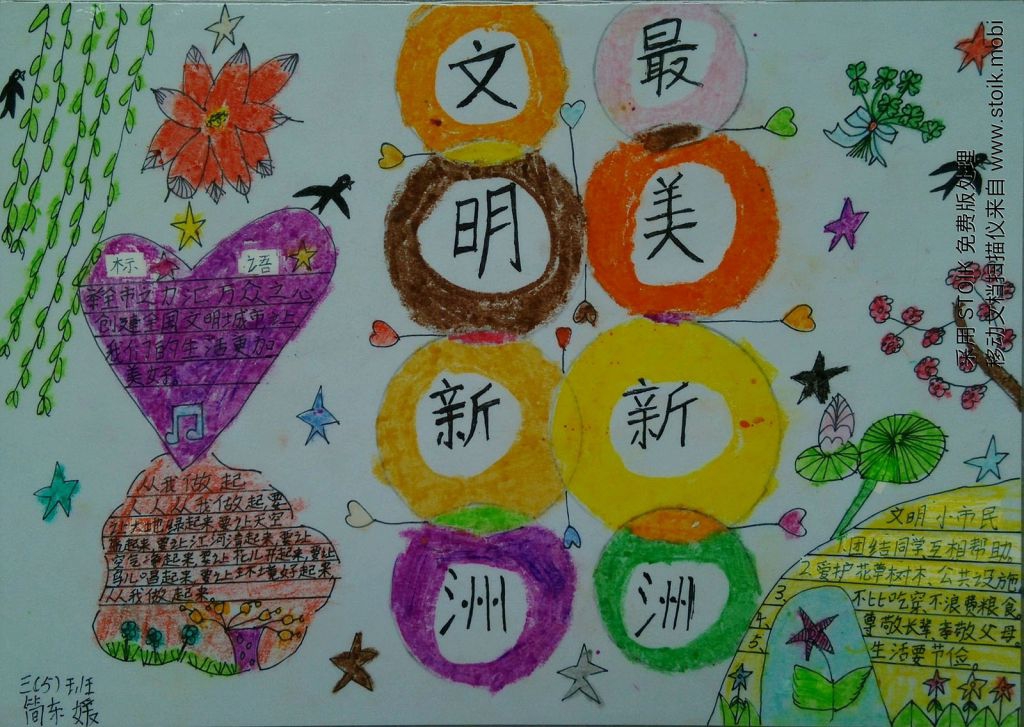 文明新洲
最美新洲
标语
举全市之力汇万众之心
创建全国文明城市让
我们的生活更加
美好。
从我做起
人人从我做起要
让大地绿起来要让天空
蓝起来要让江河清起来要让
空气净起来要让花儿开起来要让
鸟儿唱起来要让环境好起来
从我做起来。
文明小市民
1.团结同学互相帮助。
2.爱护花草树木、公共设施
3.不比吃穿不浪费粮食
4.尊敬长辈孝敬父母。
5.生活要节俭。
三(5)班
简东媛
采用 STOIK 免费版处理
移动文档扫描仪来自 www.stoik.mobi